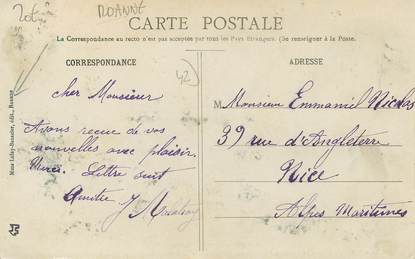 ROANNE
CARTE POSTALE
La Correspondance au recto n'est pas acceptée par tous les Pays Étrangers. (Se renseigner à la Poste.
CORRESPONDANCE
42
cher Monsieur
Avons recue de vos
nouvelles avec plaisir.
Merci. Lettre suit
Amitié J
ADRESSE
M Monsieur Emmanuel Nicolas
39 rue d'Angleterre
Nice
Alpes Maritimes
édit., Roanne